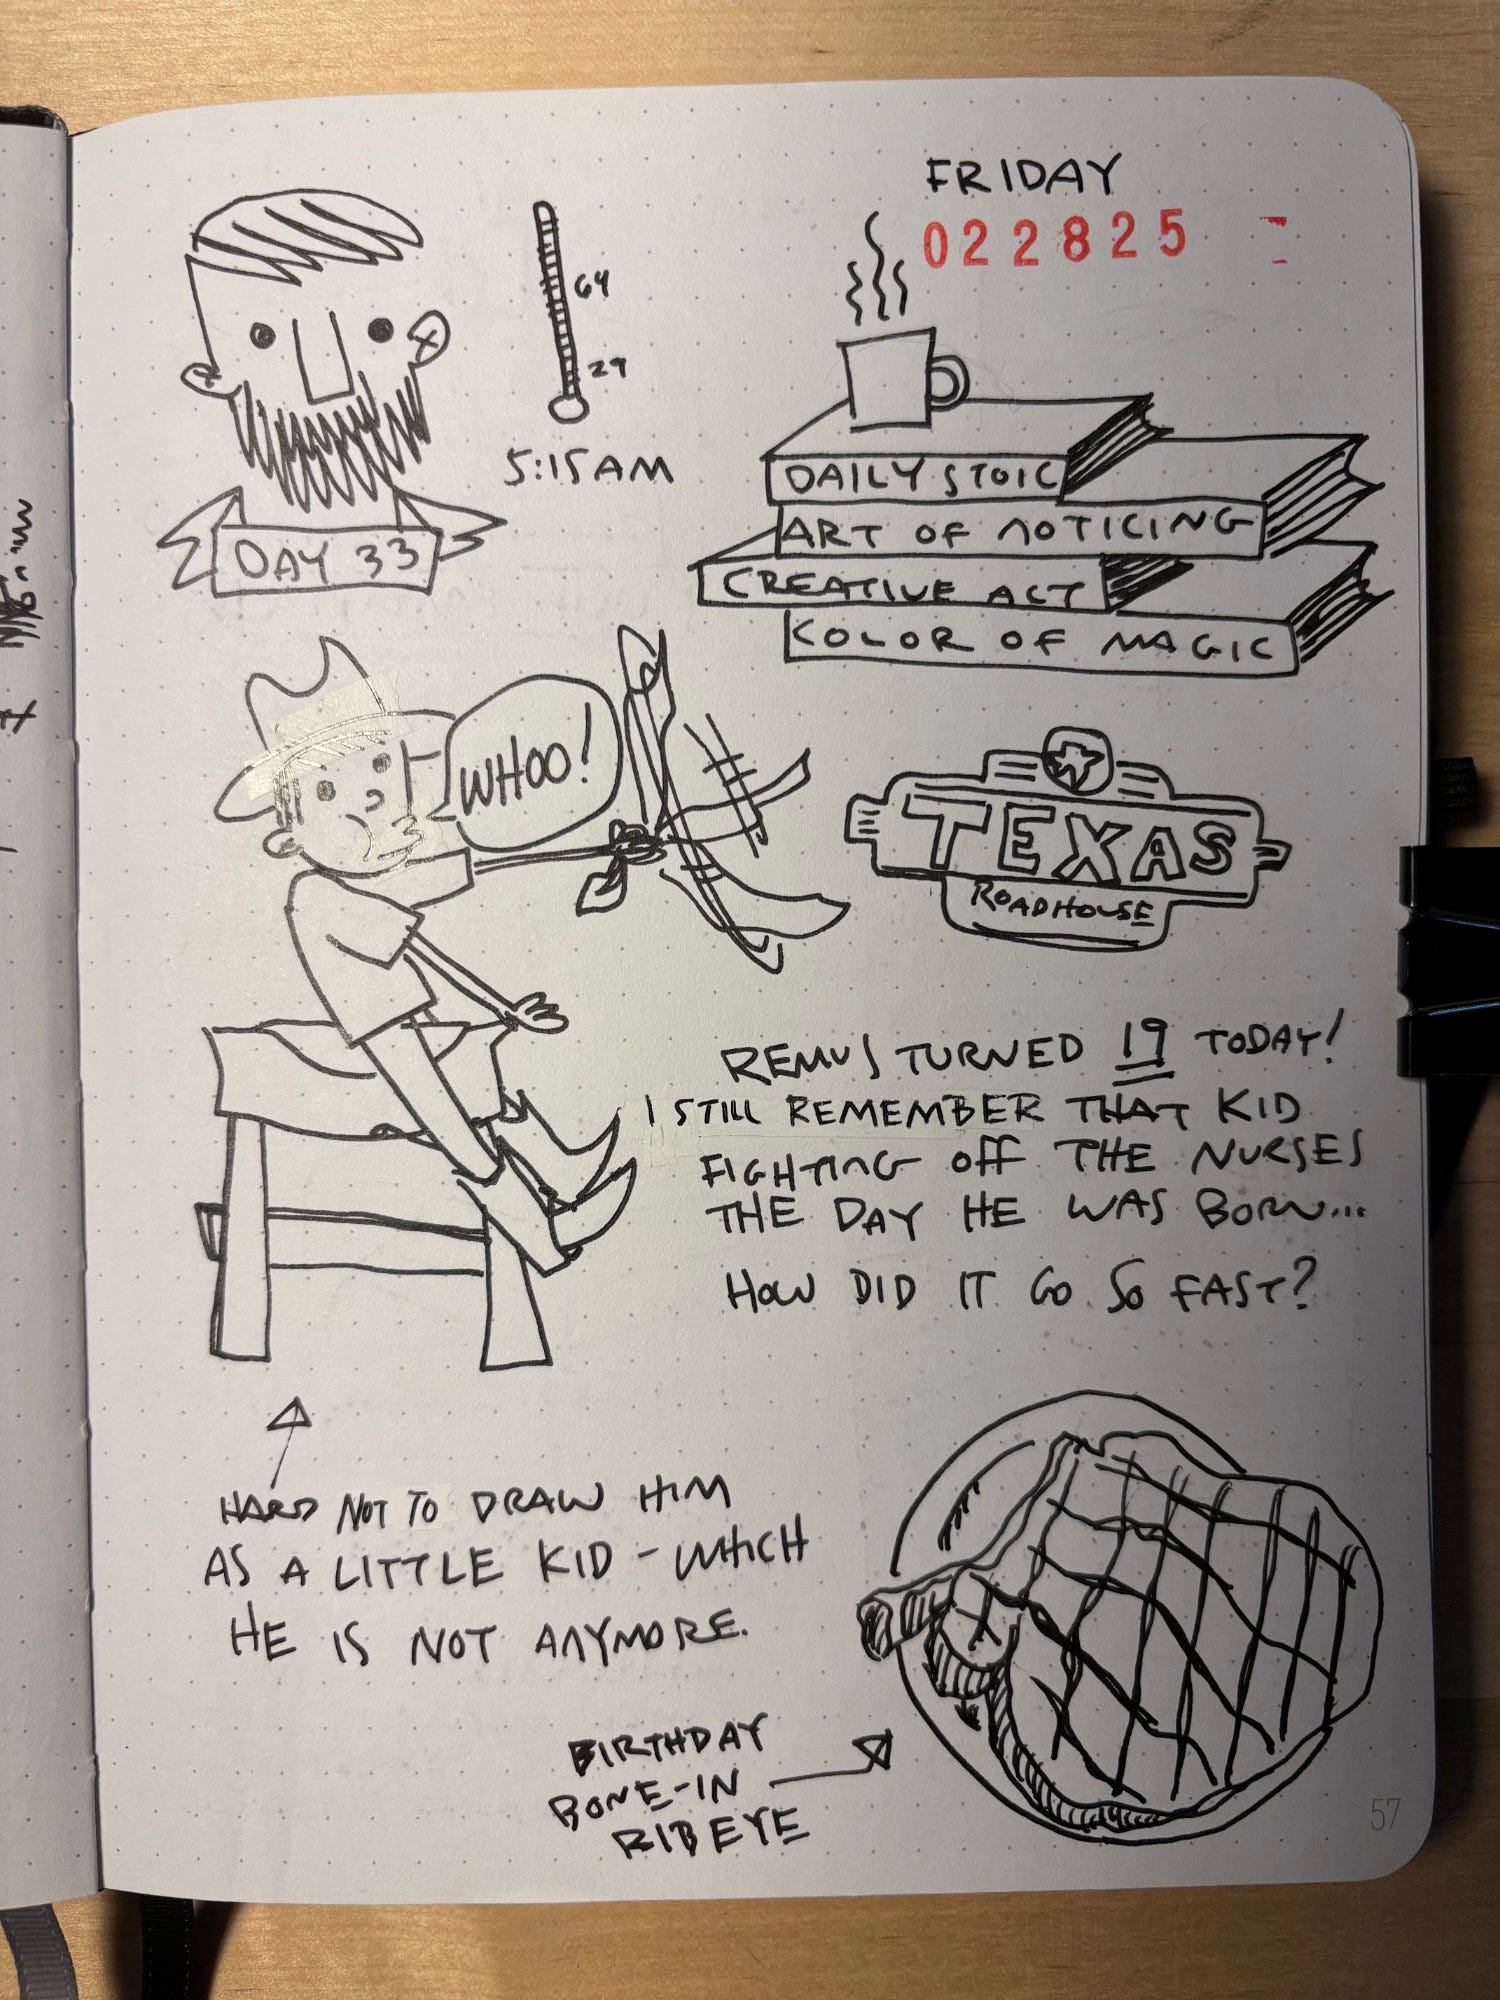 FRIDAY
022825
64
29
5:15AM
DAY 33
DAILY STOIC
ART OF NOTICING
CREATIVE ACT
KOLOR OF MAGIC
WHOO!
TEXAS
ROADHOUSE
REMUS TURNED 19 TODAY!
I STILL REMEMBER THAT KID
FIGHTING OFF THE NURSES
THE DAY HE WAS BORN...
HOW DID IT GO SO FAST?
HARD NOT TO DRAW HIM
AS A LITTLE KID - WHICH
HE IS NOT ANYMORE.
BIRTHDAY
BONE-IN
RIBEYE
57